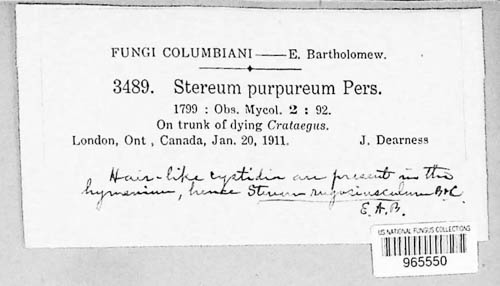 FUNGI COLUMBIANI — E. Bartholomew.
3489. Stereum purpureum Pers.
1799 : Obs. Mycol. 2 : 92.
On trunk of dying Crataegus.
London, Ont , Canada, Jan. 20, 1911. J. Dearness
Hair-like cystidia are present in the
hymenium, hence Stereum rugosiusculum B&C.
E.A.B.
US NATIONAL FUNGUS COLLECTIONS
965550